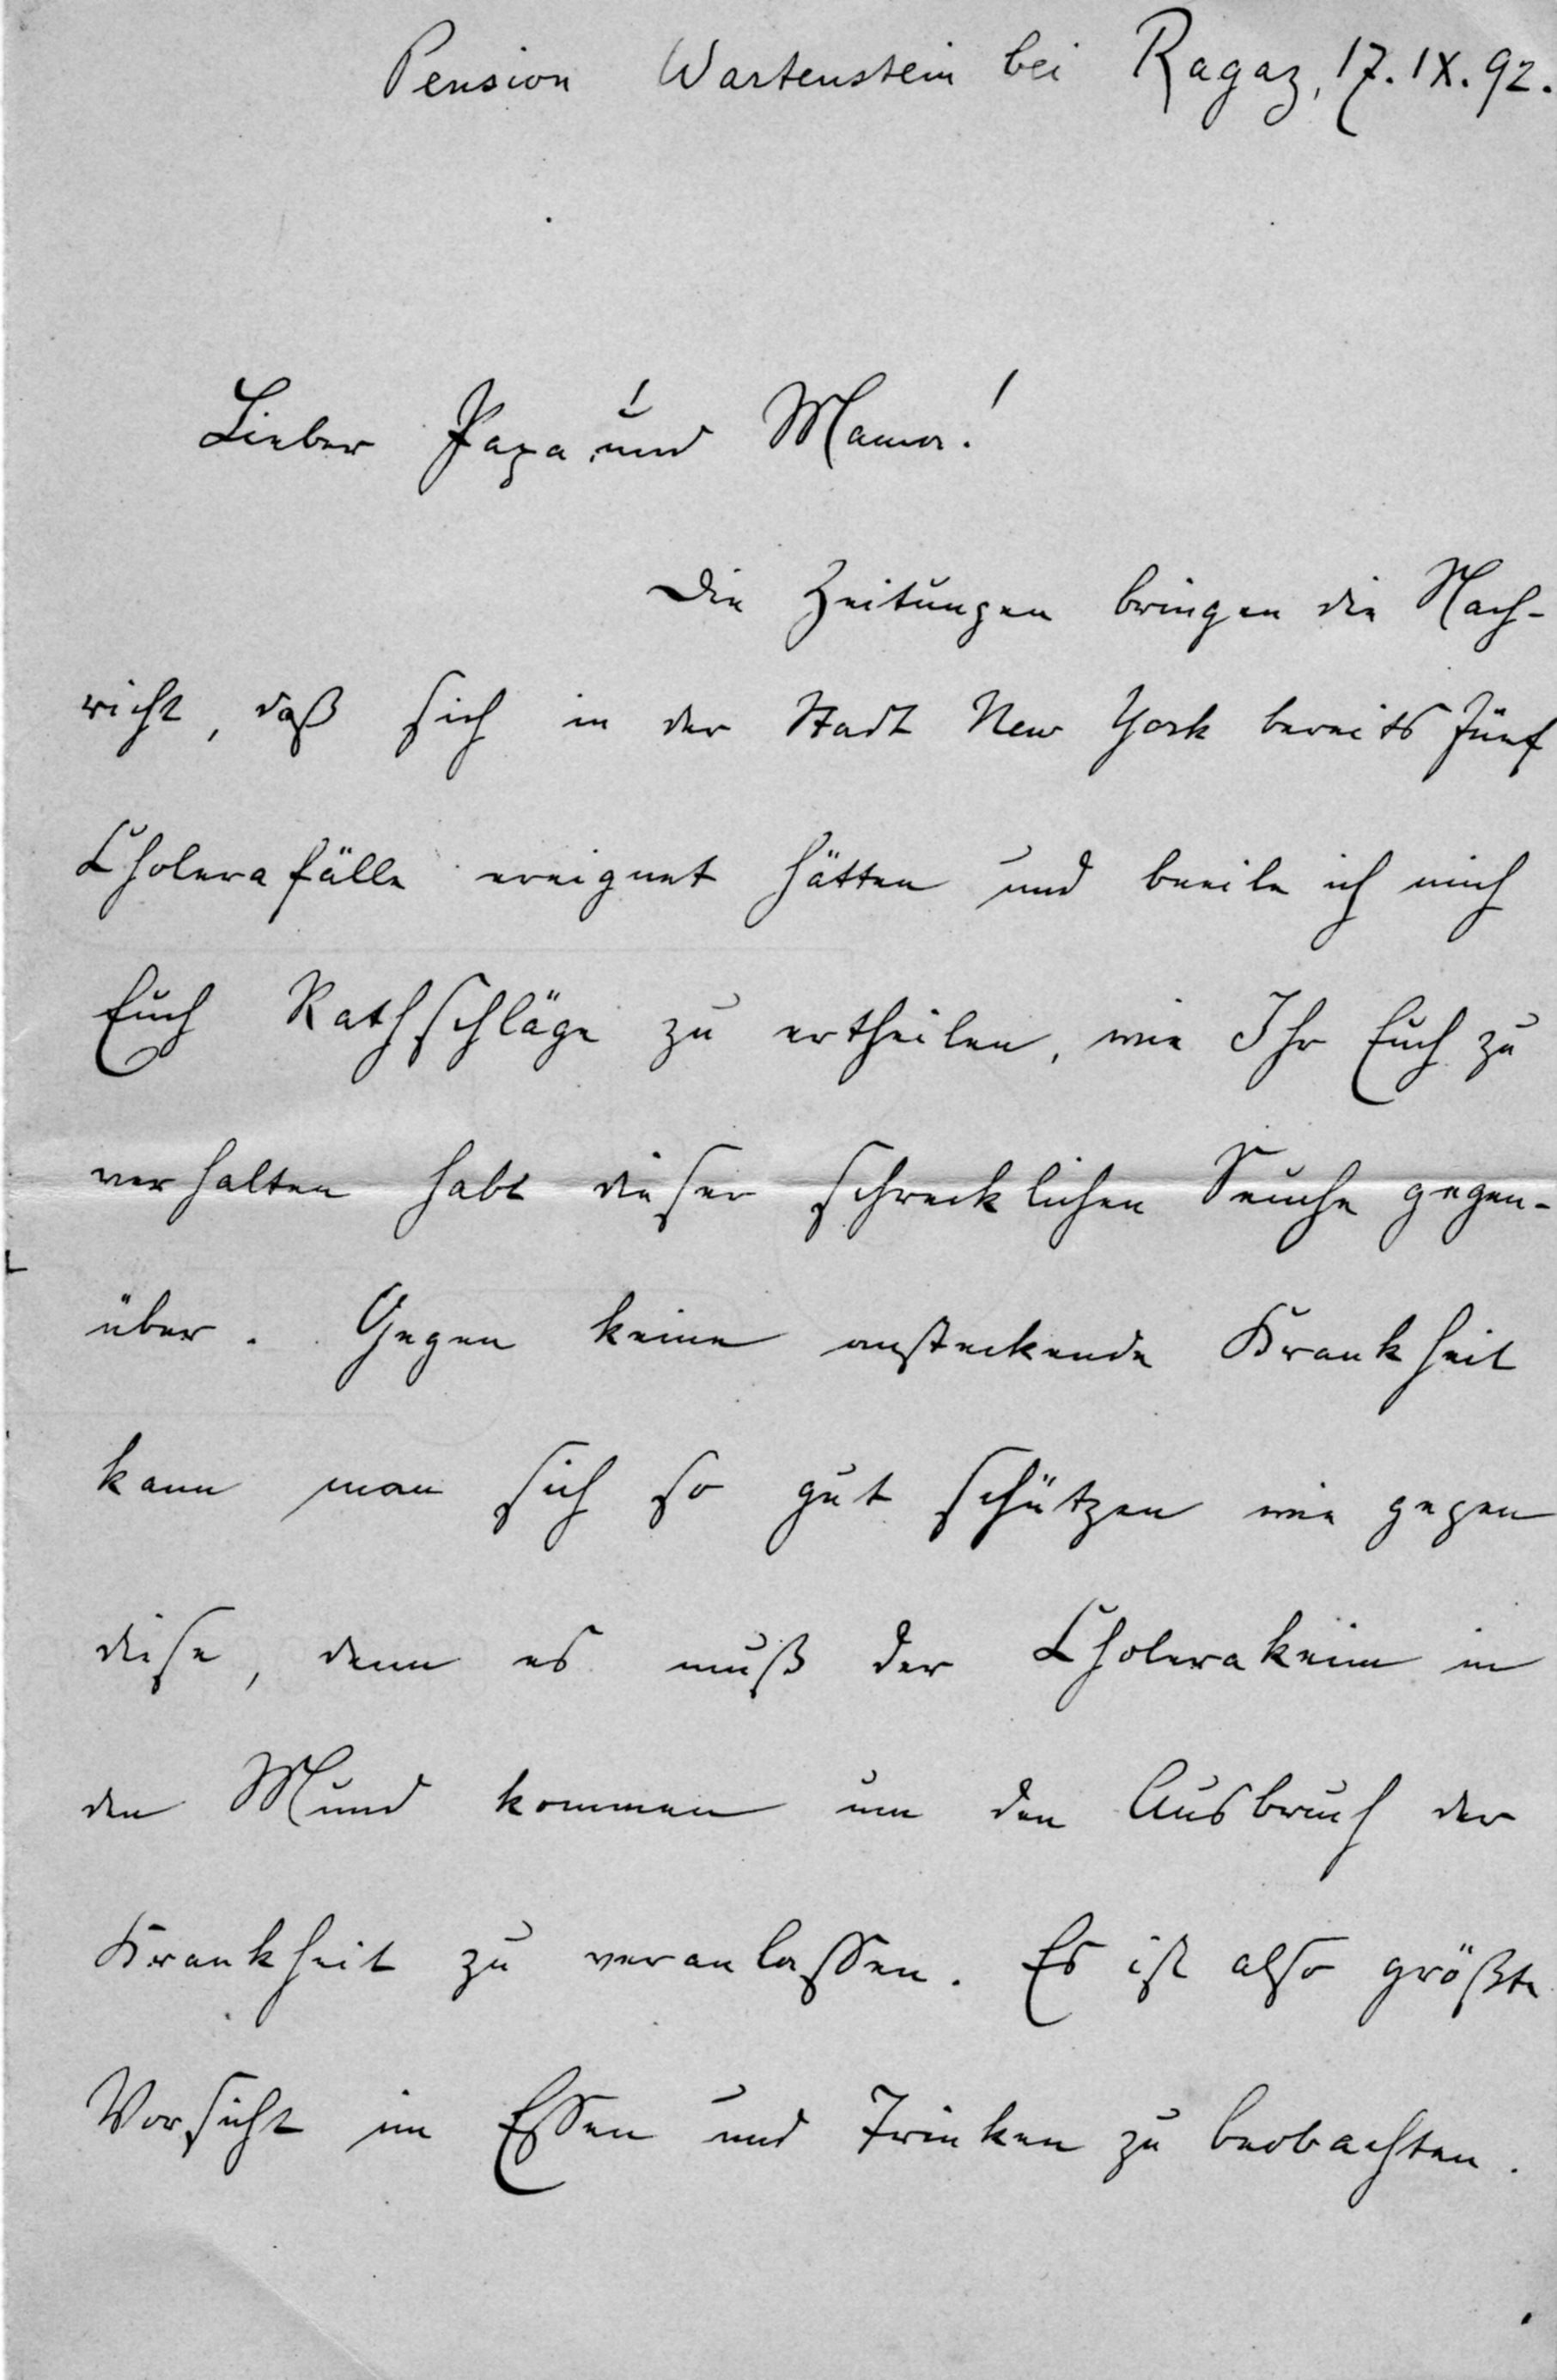 Pension Wartenstein bei Ragaz, 17. IX. 92.
Lieber Papa und Mama!
Die Zeitungen bringen die Nach-
richt, daß sich in der Stadt New York bereits fünf
Cholerafälle ereignet hätten und beeile ich mich
Euch Rathschläge zu ertheilen, wie Ihr Euch zu
verhalten habt dieser schrecklichen Seuche gegen-
über. Gegen keine ansteckende Krankheit
kann man sich so gut schützen wie gegen
diese, denn es muß der Cholerakeim in
den Mund kommen um den Ausbruch der
Krankheit zu veranlassen. Es ist also größte
Vorsicht im Essen und Trinken zu beobachten.